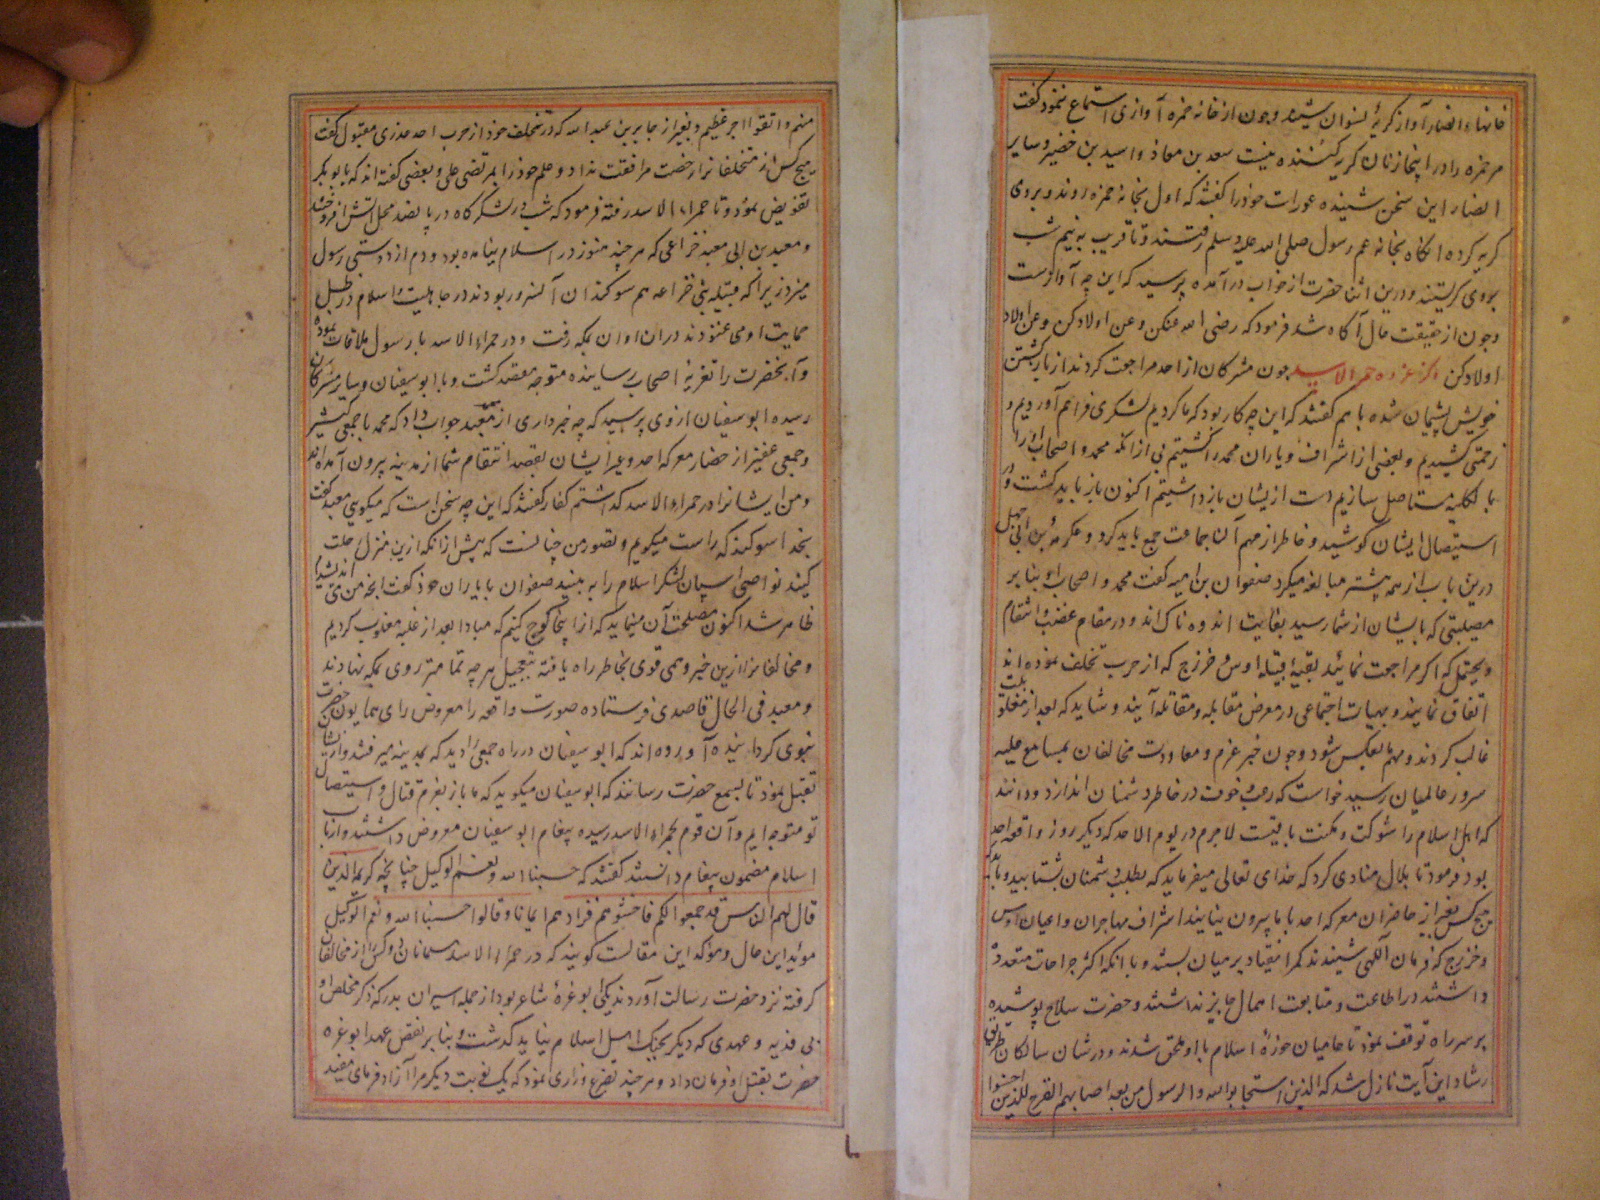 خانهاء انصار آواز گریهٔ نسوان شنید و چون از خانه حمزه آوازی استماع ننمود گفت
مر حمزه را در اینجا زنان گریه کننده نیست سعد بن معاذ و اسید بن حضیر و سایر
انصار این سخن شنیده عورات خود را گفتند که اول بخانهٔ حمزه روند و بر وی
گریه کرده انگاه بخانه عم رسول صلی الله علیه وسلم رفتند و تا قریب به نیم شب
بر وی گریستند و درین اثنا حضرت از خواب درآمده پرسید که این چه آوازست
و چون از حقیقت حال آگاه شد فرمود که رضی الله عنکن و عن اولادکن و عن اولاد
اولادکن ذکر غزوه حمراء الاسد چون مشرکان از احد مراجعت کردند از بازگشتن
خویش پشیمان شده با هم گفتند که این چه کار بود که ما کردیم لشکری فراهم آوردیم و
زحمتی کشیدیم و بعضی از اشراف و یاران محمد را کشتیم بی از انکه محمد و اصحاب او را
بالکلیه مستاصل سازیم دست ازیشان بازداشتیم اکنون باز باید گشت و در
استیصال ایشان کوشید و خاطر از مهم آنجماعت جمع باید کرد و عکرمه بن ابی جهل
درین باب از همه بیشتر مبالغه میکرد صفوان بن امیه گفت محمد و اصحاب او بنا بر
مصیبتی که بایشان از شما رسید بغایت اندوهناک اند و در مقام غضب و انتقام
و یحتمل که اگر مراجعت نمائید بقیهٔ قبیله اوس و خزرج که از حرب تخلف نموده اند
اتفاق نمایند و بهیات اجتماعی در معرض مقابله و مقاتله آیند و شاید که بعد از مغلوبیت
غالب گردند و مهم بعکس شود و چون خبر عزم و معاودت مخالفان بمسامع علیه
سرور عالمیان رسید خواست که رعب و خوف در خاطر دشمنان اندازد و دانند
که اهل اسلام را شوکت و مکنت باقیست لاجرم در یوم الاحد که دیگر روز واقعه احد
بود فرمود تا بلال منادی کرد که خدای تعالی میفرماید که بطلب دشمنان بشتابید و باید که
هیچکس بغیر از حاضران معرکه احد با ما بیرون نیایند اشراف مهاجران و اعیان اوس
و خزرج که فرمان الهی شنیدند کمر انقیاد بر میان بستند و با انکه اکثر جراحات متعدده
داشتند در اطاعت و متابعت اهمال جایز نداشتند و حضرت سلاح پوشیده
بر سر راه توقف نمود تا حامیان حوزهٔ اسلام باو ملحق شدند و در شان سالکان طریق
رشاد این آیت نازل شد که الذین استجابوا لله والرسول من بعد اصابهم القرح للذین احسنوا
منهم واتقوا اجر عظیم و بغیر از جابر بن عبد الله که در تخلف خود از حرب احد عذری مقبول گفت
هیچکس از متخلفان را رخصت مرافقت نداد و علم خود را بمرتضی علی و بعضی گفته اند که بابوبکر
تفویض نمود و تا حمراء الاسد رفته فرمود که شب در لشکرگاه در پانصد محل آتش افروختند
و معبد بن ابی معبد خزاعی که هر چند هنوز در اسلام نیامده بود و دم از دوستی رسول
میزد زیرا که قبیله بنی خزاعه هم سوگندان آنسرور بودند در جاهلیت و اسلام در ظل
حمایت او می غنودند دران اوان بمکه رفت و در حمراء الاسد با رسول ملاقات نموده
و آنحضرت را تعزیهٔ اصحاب رسانیده متوجه مقصد گشت و با ابوسفیان و سایر مشرکان
رسیده ابوسفیان از وی پرسید که چه خبر داری از محمد معبد جواب داد که محمد با جمعی کثیر
و جمعی غفیر از حضار معرکه احد و غیر ایشان بقصد انتقام شما از مدینه بیرون آمده اند
و من ایشانرا در حمراء الاسد گذاشتم کفار گفتند که این چه سخن است که میگویی معبد گفت
بخدا سوگند که راست میگویم و تصور من چنانست که پیش از انکه ازین منزل رحلت
کنید نواصی اسپان لشکر اسلام را به بینید صفوان با یاران خود گفت انچه من می اندیشیدم
ظاهر شد اکنون مصلحت آن مینماید که از اینجا کوچ کنیم که مبادا بعد از غلبه مغلوب گردیم
و مخالفانرا ازین خبر وهمی قوی بخاطر راه یافته بتعجیل هر چه تمامتر روی بمکه نهادند
و معبد فی الحال قاصدی فرستاده صورت واقعه را معروض رای همایون حضرت
نبوی گردانید آورده اند که ابوسفیان در راه جمعی را دید که بمدینه میرفتند و ازیشان
تقبل نمود تا بسمع حضرت رسانند که ابوسفیان میگوید که ما باز بعزم قتال و استیصال
تو متوجه ایم و آن قوم بحمراء الاسد رسیده پیغام ابوسفیان معروض داشتند و ارباب
اسلام مضمون پیغام دانستند گفتند که حسبنا الله ونعم الوکیل چنانچه کریمه الذین
قال لهم الناس قد جمعوا لکم فاخشوهم فزادهم ایمانا وقالوا حسبنا الله ونعم الوکیل
موئید این حال و موکد این مقالت گویند که در حمراء الاسد مسلمانان دو کس را از مخالفان
گرفته نزد حضرت رسالت آوردند یکی ابو غرهٔ شاعر بود از جمله اسیران بدر که ذکر مخلص او
بی فدیه و عهدی که دیگر بجنگ اهل اسلام نیاید گذشت و بنا بر نقض عهد ابو غره
حضرت بقتل او فرمان داد و هر چند تضرع و زاری نمود که یک نوبت دیگر مرا آزاد فرمای مفید